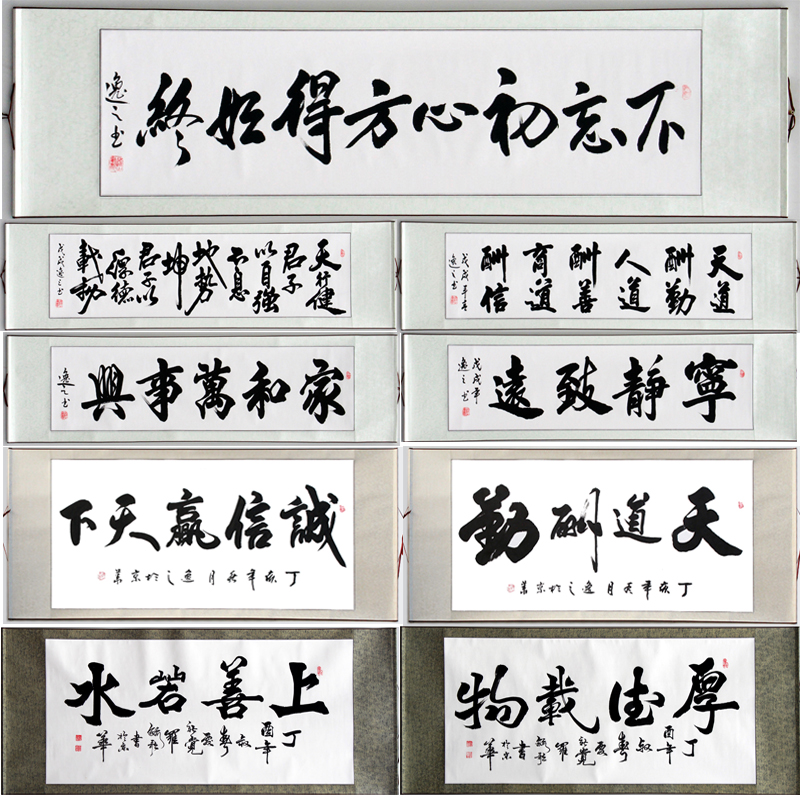 不忘初心方得始終
逸之书
天行健
君子
以自強
不息
地勢
坤
君子以
厚德
載物
戊戌逸之书
天道
酬勤
人道
酬善
商道
酬信
戊戌年春
逸之书
家和萬事興
逸之书
寧靜致遠
戊戌年
逸之书
誠信贏天下
丁亥年秋月逸之於京華
天道酬勤
丁亥年秋月逸之於京華
上善若水
丁
酉年
羅
書
於京
華
厚德載物
丁
酉年
羅
書
於京
華